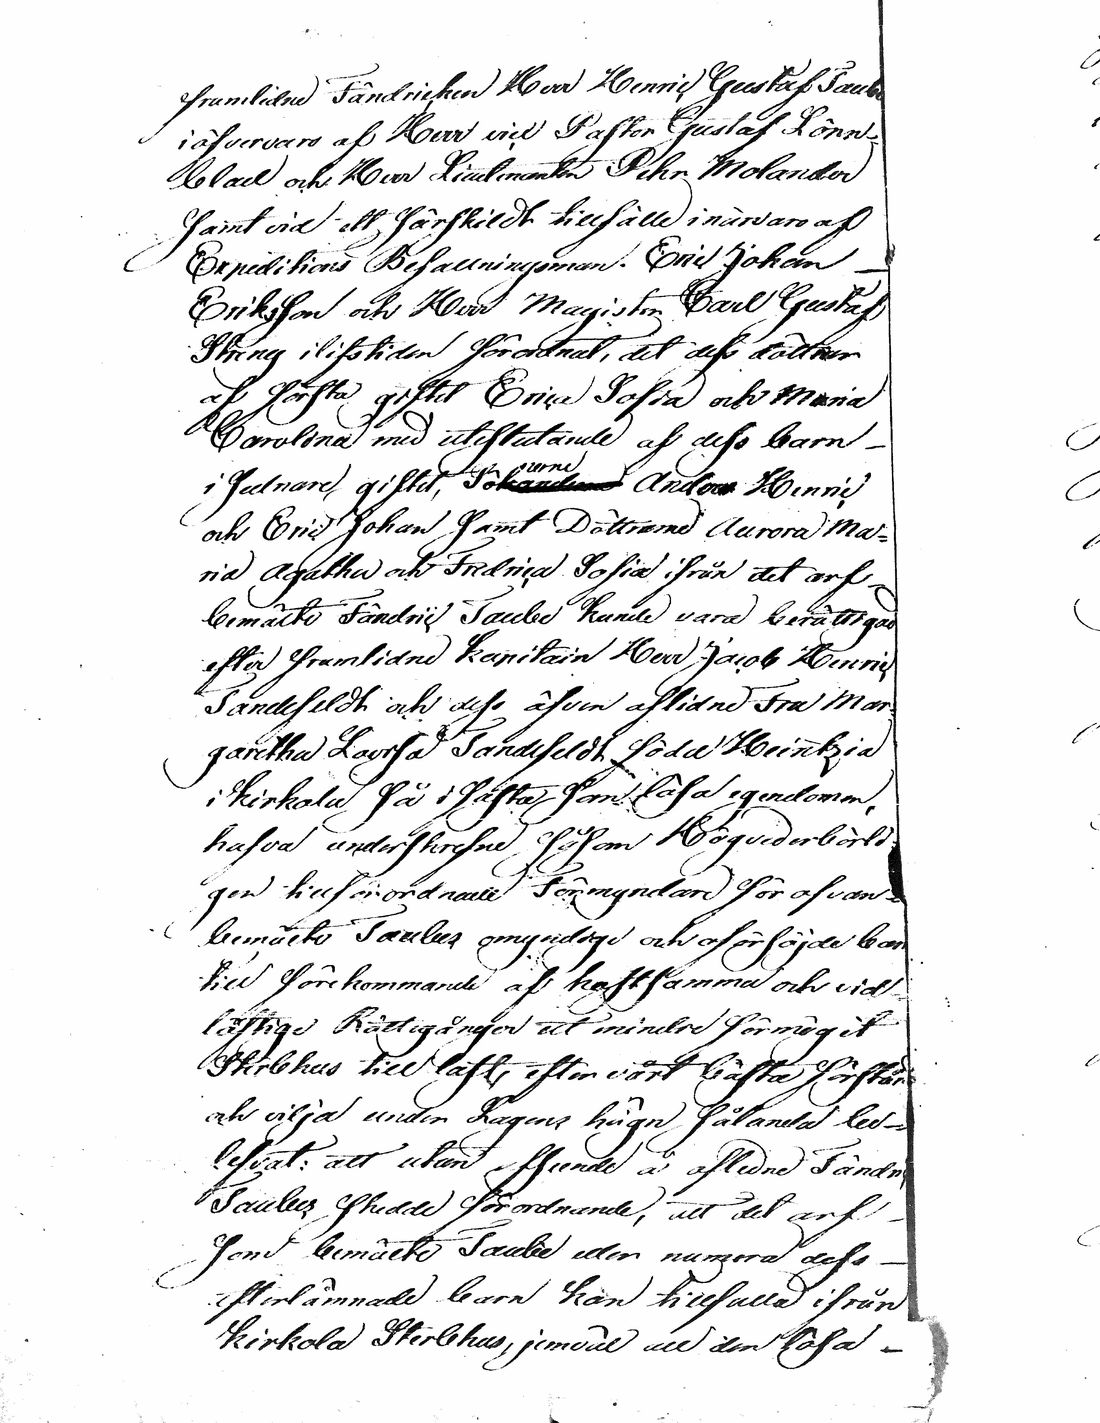 framlidne Fändricken Herr Henric Gustaf Taube
i öfvervaro af Herr vice Pastor Gustaf Lönn-
blad och Herr Lieutenanten Pehr Molander
samt vid ett särskildt tillfälle i närvaro af
Expeditions Befallningsman. Eric Johan
Eriksson och Herr Magister Carl Gustaf
Streng i lifstiden förordnat, det dess döttrar
af första giftet Erica Sofia och Maria
Carolina med uteslutande af dess barn
i sednare giftet, Sönerne Anders Henric
och Eric Johan samt Döttrarne Aurora Ma-
ria Agatha och Fredrica Sofia ifrån det arf
bemälte Fändric Taube kunde vara berättigad
efter framlidne Kapitain Herr Jacob Henric
Tandefeldt och dess äfven aflidne Fru Mar-
garetha Lovisa Tandefeldt född Heintzia
i Kirkola så i fasta som lösa egendomen,
hafva underskrefne såsom Högvederbörli-
gen tillförordnade Förmyndare för ofvan-
bemälte Taubes omyndige och oförsöjde barn
till förekommande af kostsamma och vid-
löftige Rättegångar ett mindre förmöget
Sterbhus till last, efter vårt bästa förstånd
och vilja under Lagens hägn sålunda bec-
lefvat: att utan afseende å aflidne Fändr
Taubes skedde förordnande, att det arf
som bemälte Taube eller numera dess
efterlämnade barn kan tillfalla ifrån
Kirkola Sterbhus, jemväl all den lösa